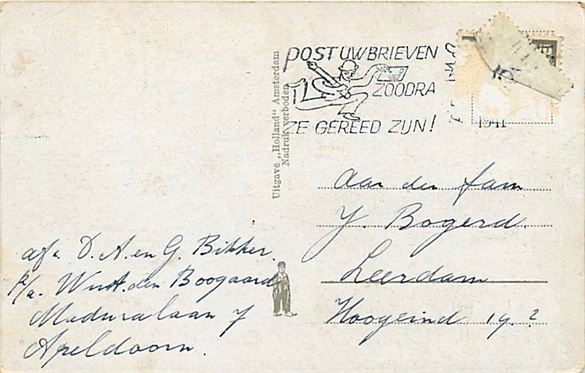 POST UW BRIEVEN
ZOODRA
ZE GEREED ZIJN!
1941
Uitgave „Holland" Amsterdam
Nadruk verboden
Aan den fam
J. Bogerd.
Leerdam
Hoogeind 19.?
afz. D. A. en G. Bikker.
p/a. Wed. A. den Boogaard
Maduralaan 7
Apeldoorn.